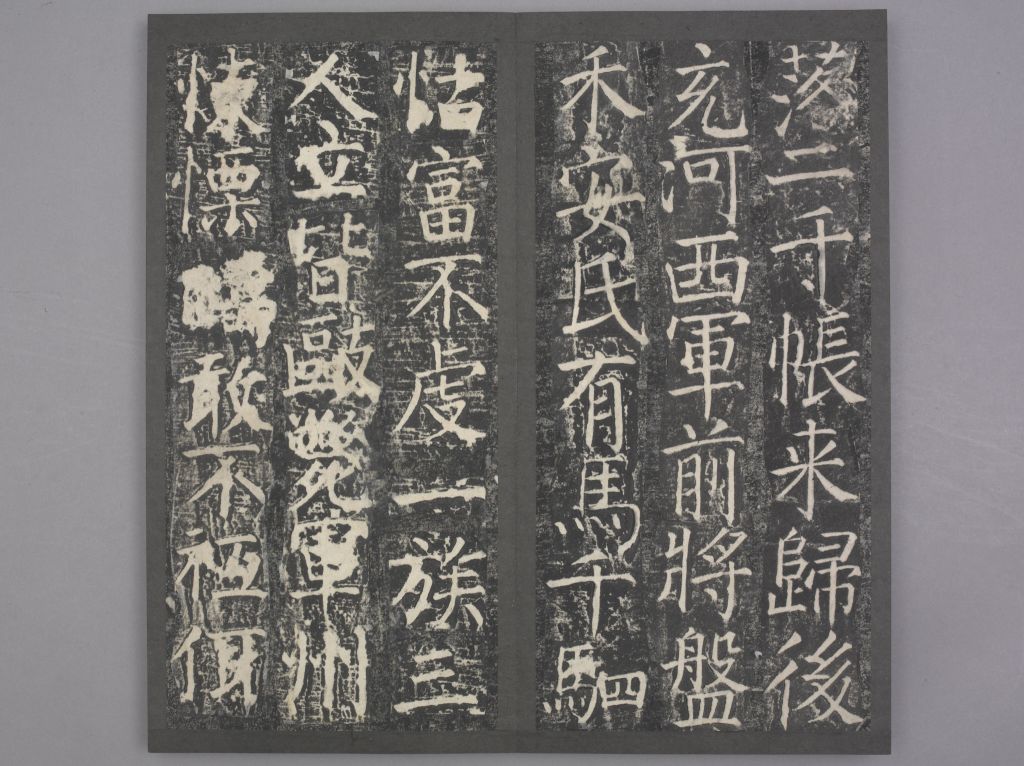 落二千帳来歸後
充河西軍前將盤
禾安氏有馬千駟
怙富不虔一族三
人立皆毆斃軍州
悚慄敢不祗